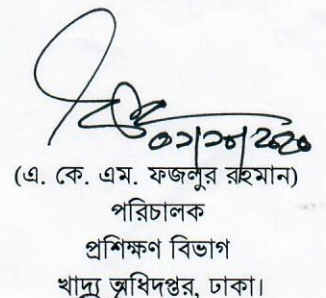 ০১/১০/২০২০
(এ. কে. এম. ফজলুর রহমান)
পরিচালক
প্রশিক্ষণ বিভাগ
খাদ্য অধিদপ্তর, ঢাকা।